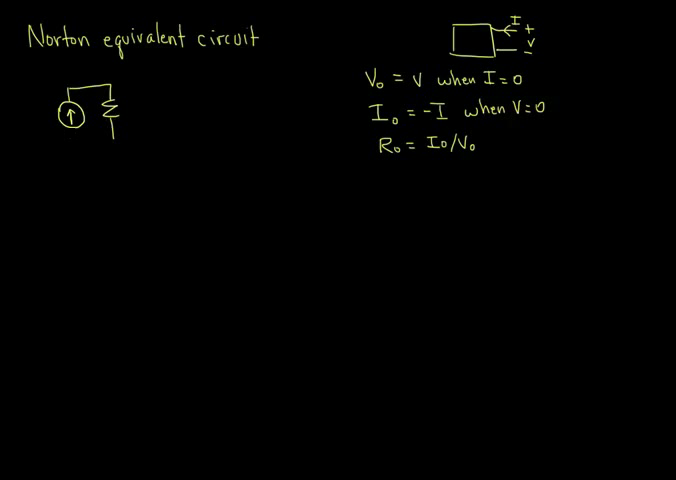 Norton equivalent circuit
I
+
V
-
V₀ = V when I = 0
I₀ = -I when V = 0
R₀ = I₀/V₀